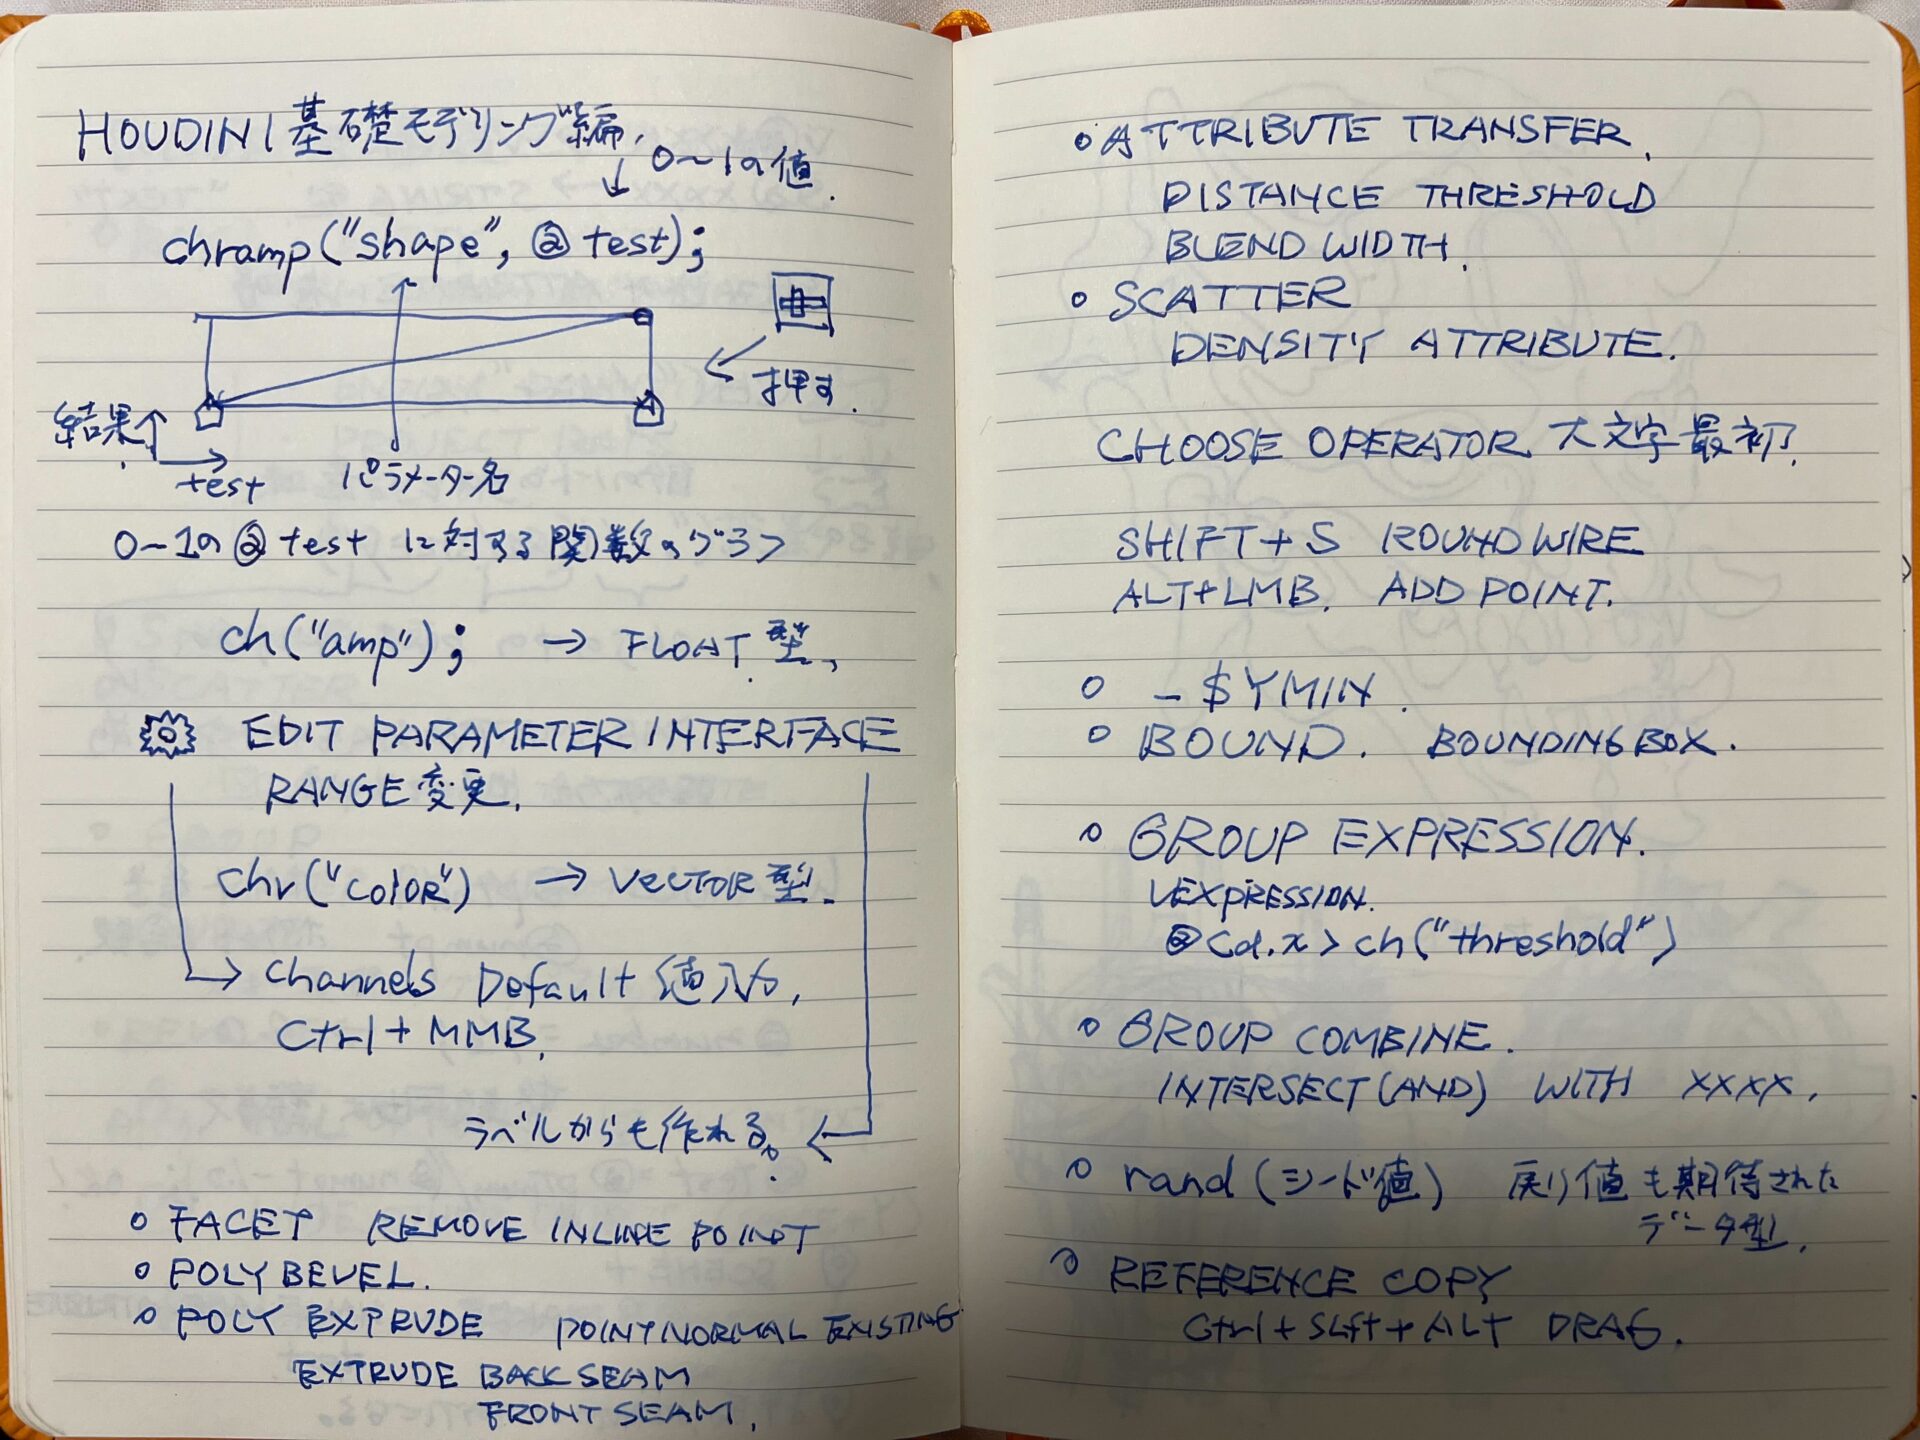 HOUDINI 基礎モデリング編.
0〜1の値.
chramp("shape", @test);
押す.
結果
test
パラメーター名
0〜1の@test に対する関数のグラフ
ch("amp"); → FLOAT型.
EDIT PARAMETER INTERFACE
RANGE変更.
chv("color") → VECTOR型.
Channels Default 値入力.
Ctrl+MMB.
ラベルからも作れる。
○ FACET REMOVE INLINE POINT
○ POLY BEVEL.
○ POLY EXPRUDE POINT NORMAL EXISTING
EXTRUDE BACK SEAM
FRONT SEAM.
○ ATTRIBUTE TRANSFER.
DISTANCE THRESHOLD
BLEND WIDTH.
○ SCATTER
DENSITY ATTRIBUTE.
CHOOSE OPERATOR 大文字最初.
SHIFT+S ROUND WIRE
ALT+LMB. ADD POINT.
○ -$YMIN.
○ BOUND. BOUNDING BOX.
○ GROUP EXPRESSION.
VEXPRESSION.
@Cd.x > ch("threshold")
○ GROUP COMBINE.
INTERSECT(AND) WITH XXXX.
○ rand(シード値) 戻り値も期待された
データ型.
○ REFERENCE COPY
Ctrl+Sift+ALT DRAG.